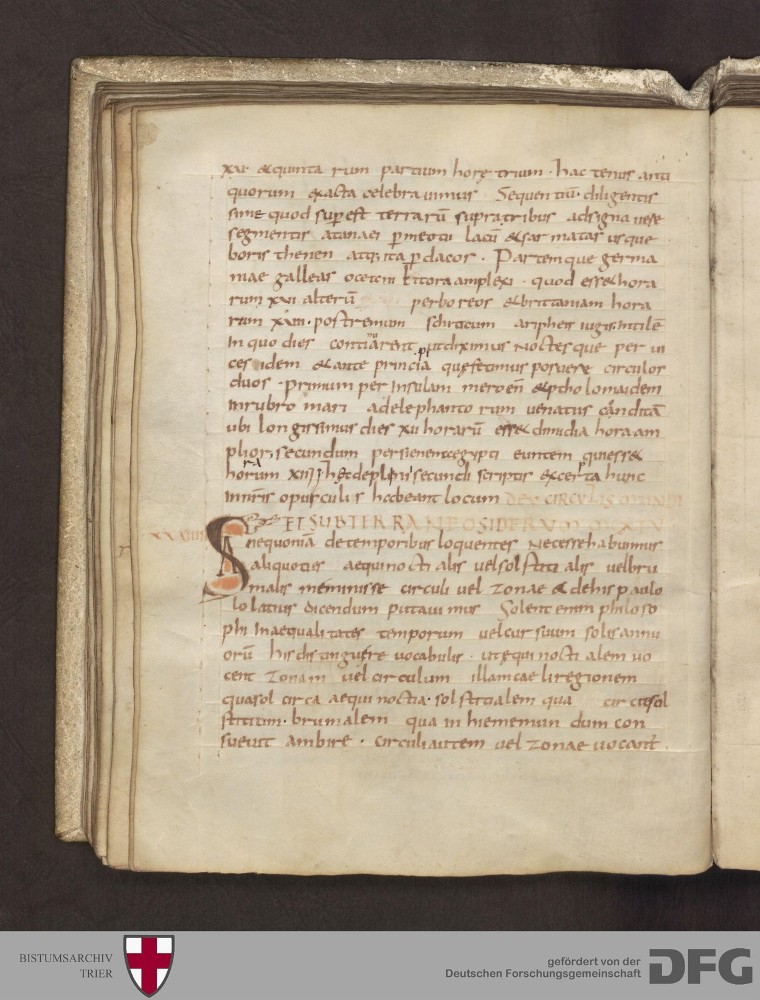 xvi &quinta rum partium horę trium · hac tenus anti
quorum exacta celebra uimus Sequentiū diligentis
sime quod sup est terrarū supra tribus adsigna uere
segmentis atanaei p meotii lacū &sar matas usque
boris thenen atq; ita p dacos · Partem que germa
niae galleas oceani littora amplexi · quod ess& hora
rum xvi alterū perboreos &brittaniam hora
rum xvii · postremum schiticum aripheis iugis intilē
In quo dies continarent ut diximus Noctes que per ui
ces idem &ante principia quę fecimus posuere circulos
duos · primum per Insulam meroen &ptholomaidem
Inrubro mari adelephanto rum uenatus canditā
ubi longissimus dies xii horarū ess& dimidia hora am
plior; secundum per sienen egypti euntem qui ess&
horum xiii hęc deplini secundi scriptis excerpta hunc
in nris opusculis habeant locum DE V CIRCULIS MUNDI
ET SUBTERRANEO SIDERUM MEATU
xxxiiii
Sane quoniā de temporibus loquentes Necesse habuimus
aliquoties aequinocti alis uel solstiti alis uel bru
malis meminisse circuli uel zonae & de his paulo
lo latius dicendum putaui mus Solent enim philoso
phi Inaequalitates temporum uel cursuum solis annu
orū his distinguere uocabulis · ut equi nocti alem uo
cent zonam uel circulum illam caeli regionem
qua sol circa aequi noctia · sol stitialem qua circa sol
stitium · brumalem qua in hiememun dum con
sueuit ambire · circuli autem uel zonae uocant
BISTUMSARCHIV
TRIER
gefördert von der
Deutschen Forschungsgemeinschaft
DFG